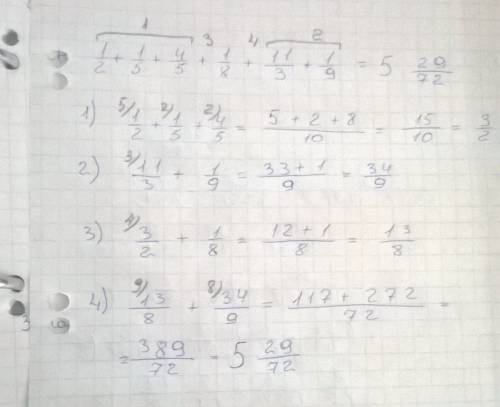 1 3 4 2
1/2 + 1/5 + 4/5 + 1/8 + 11/3 + 1/9 = 5 29/72
1) 5/1/2 + 2/1/5 + 2/4/5 = 5 + 2 + 8/10 = 15/10 = 3/2
2) 3/11/3 + 1/9 = 33 + 1/9 = 34/9
3) 4/3/2 + 1/8 = 12 + 1/8 = 13/8
4) 9/13/8 + 8/34/9 = 117 + 272/72 =
= 389/72 - 5 29/72